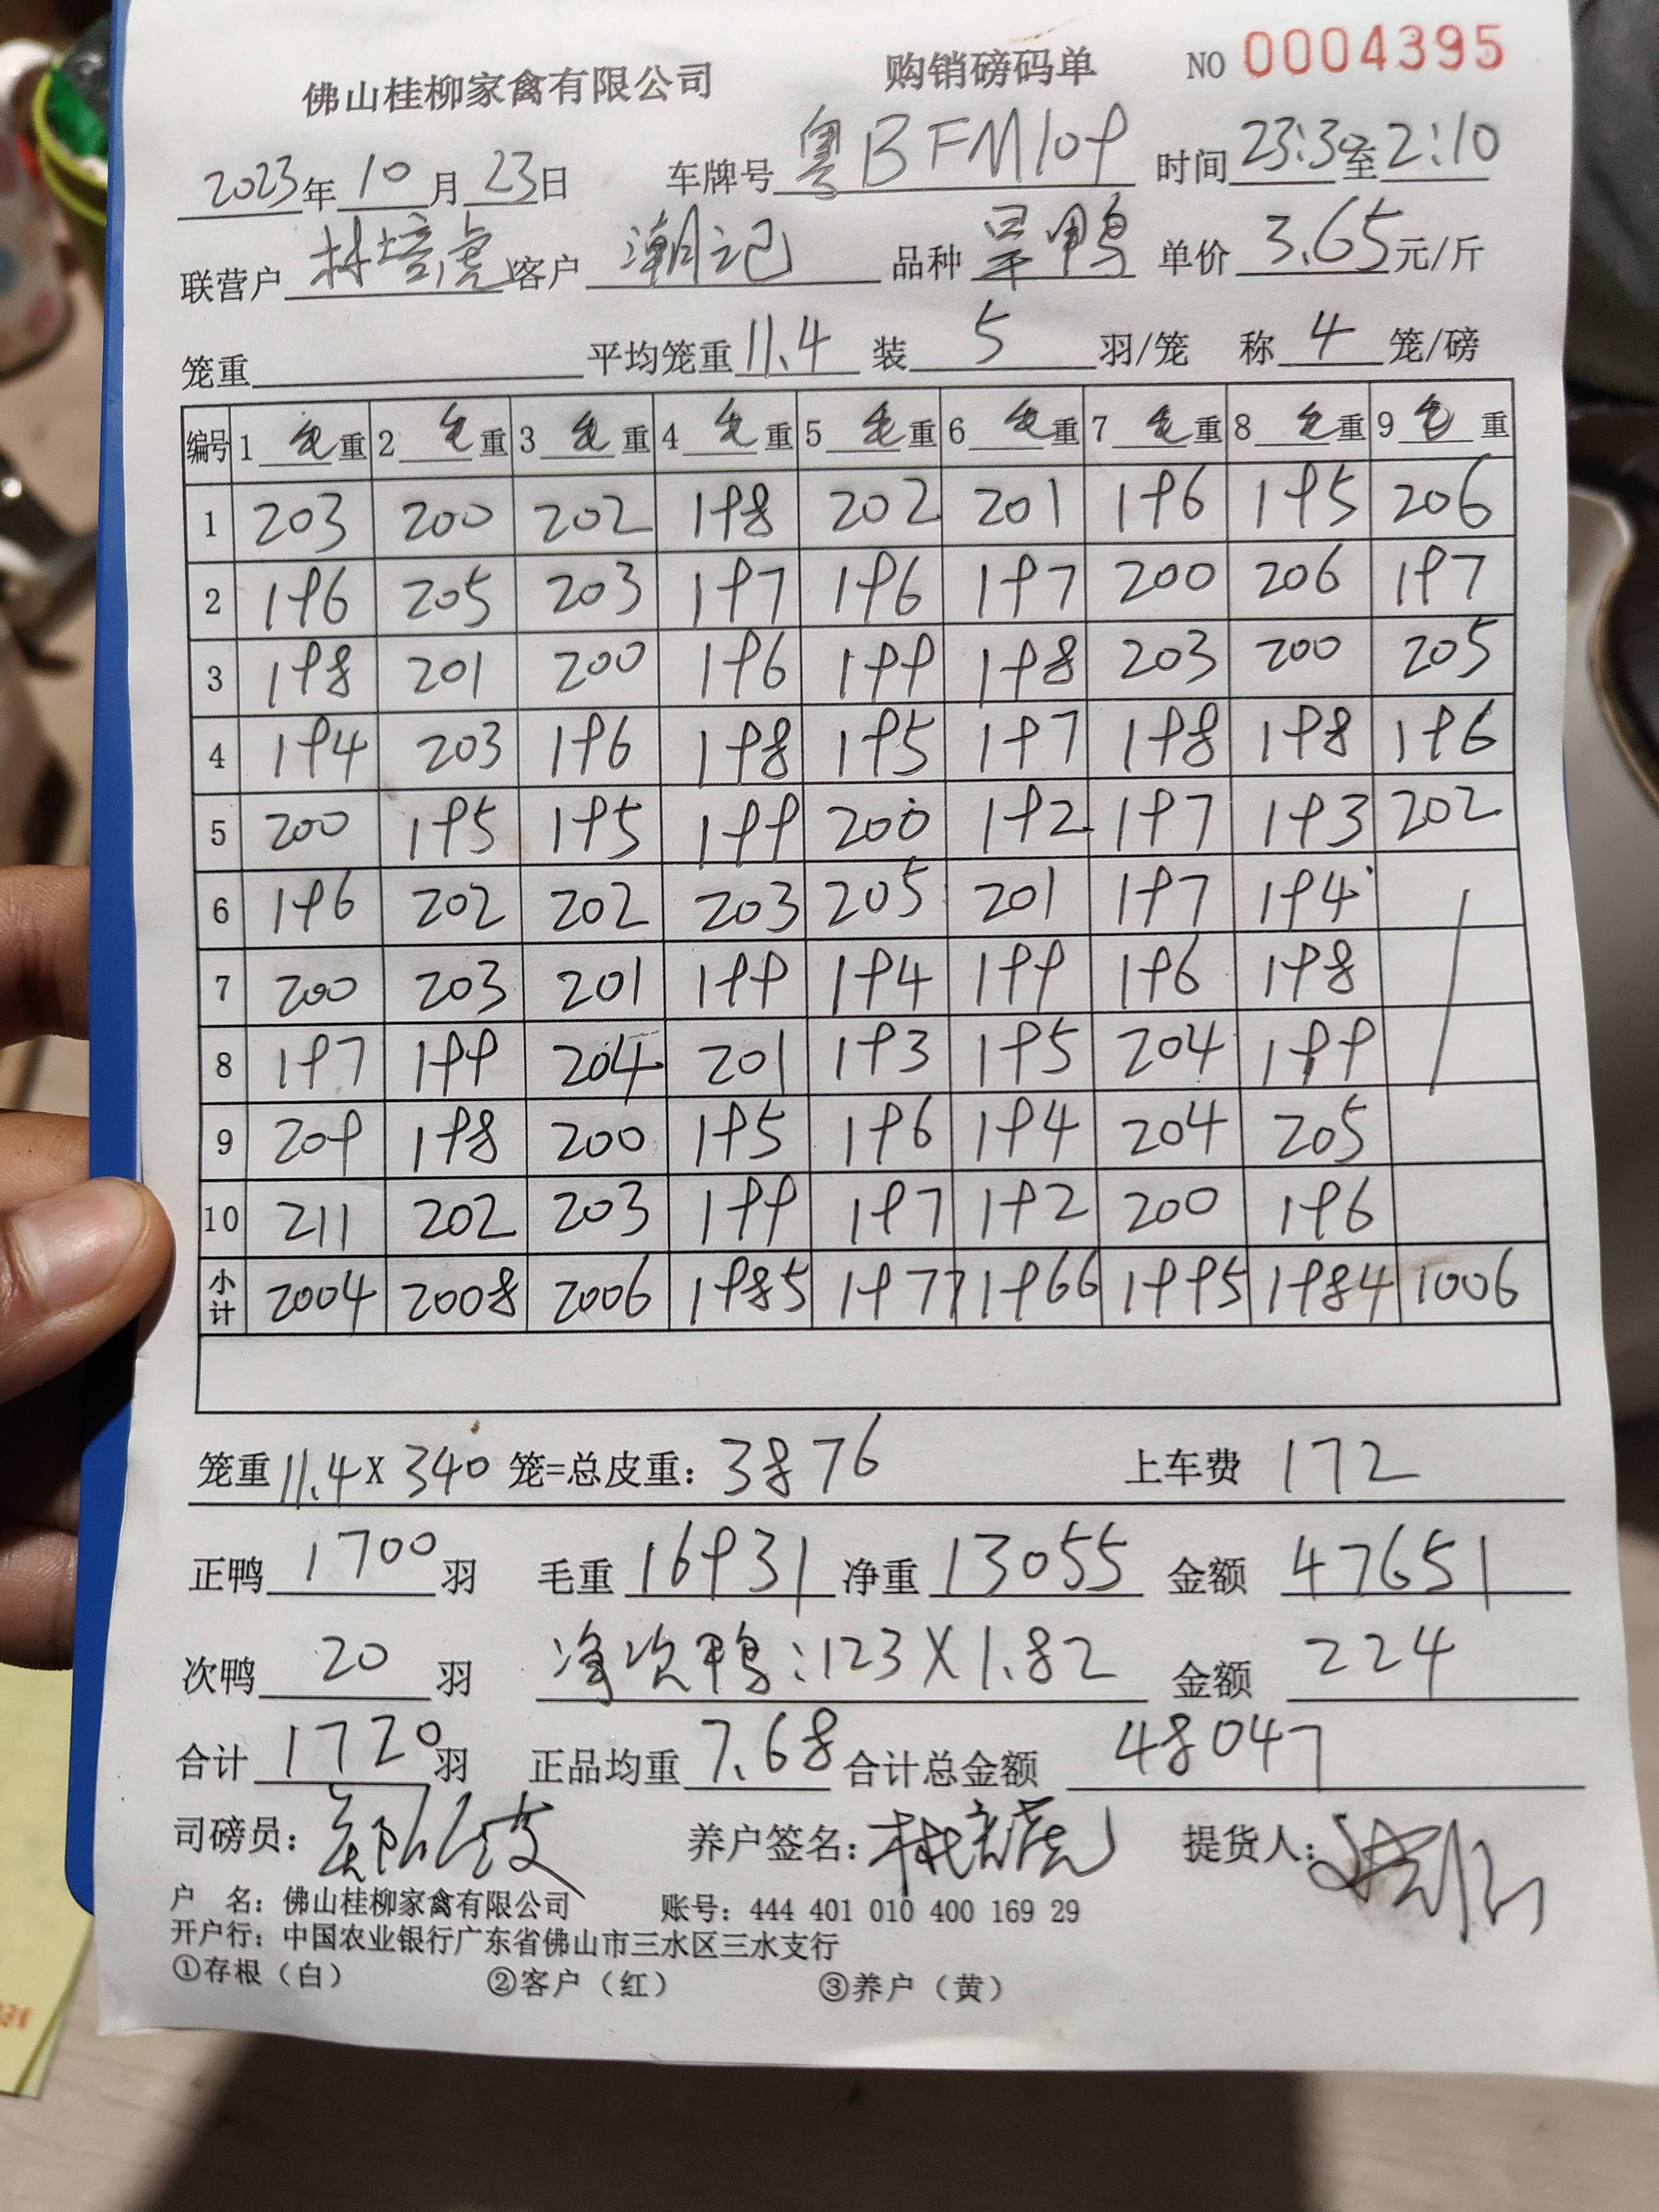 佛山桂柳家禽有限公司 购销磅码单 NO 0004395
2023年10月23日 车牌号 粤BFM109 时间 23:30至2:10
联营户 林培虎 客户 潮记 品种 呈鸭 单价 3.65元/斤
笼重 平均笼重 11.4 装 5 羽/笼 称 4 笼/磅
编号 1 毛重 2 毛重 3 毛重 4 毛重 5 毛重 6 毛重 7 毛重 8 毛重 9 毛重
1 203 200 202 198 202 201 196 195 206
2 196 205 203 197 196 197 200 206 197
3 198 201 200 196 199 198 203 200 205
4 194 203 196 198 195 197 198 198 196
5 200 195 195 199 200 192 197 193 202
6 196 202 202 203 205 201 197 194
7 200 203 201 199 194 199 196 198
8 197 199 204 201 193 195 204 199
9 209 198 200 195 196 194 204 205
10 211 202 203 199 197 192 200 196
小计 2004 2008 2006 1985 1977 1966 1995 1984 1006
笼重 11.4 X 340 笼=总皮重: 3876 上车费 172
正鸭 1700 羽 毛重 16931 净重 13055 金额 47651
次鸭 20 羽 净次鸭:123X1.82 金额 224
合计 1720 羽 正品均重 7.68 合计总金额 48047
司磅员: 养户签名: 提货人:
户 名: 佛山桂柳家禽有限公司 账号: 444 401 010 400 169 29
开户行: 中国农业银行广东省佛山市三水区三水支行
①存根（白） ②客户（红） ③养户（黄）